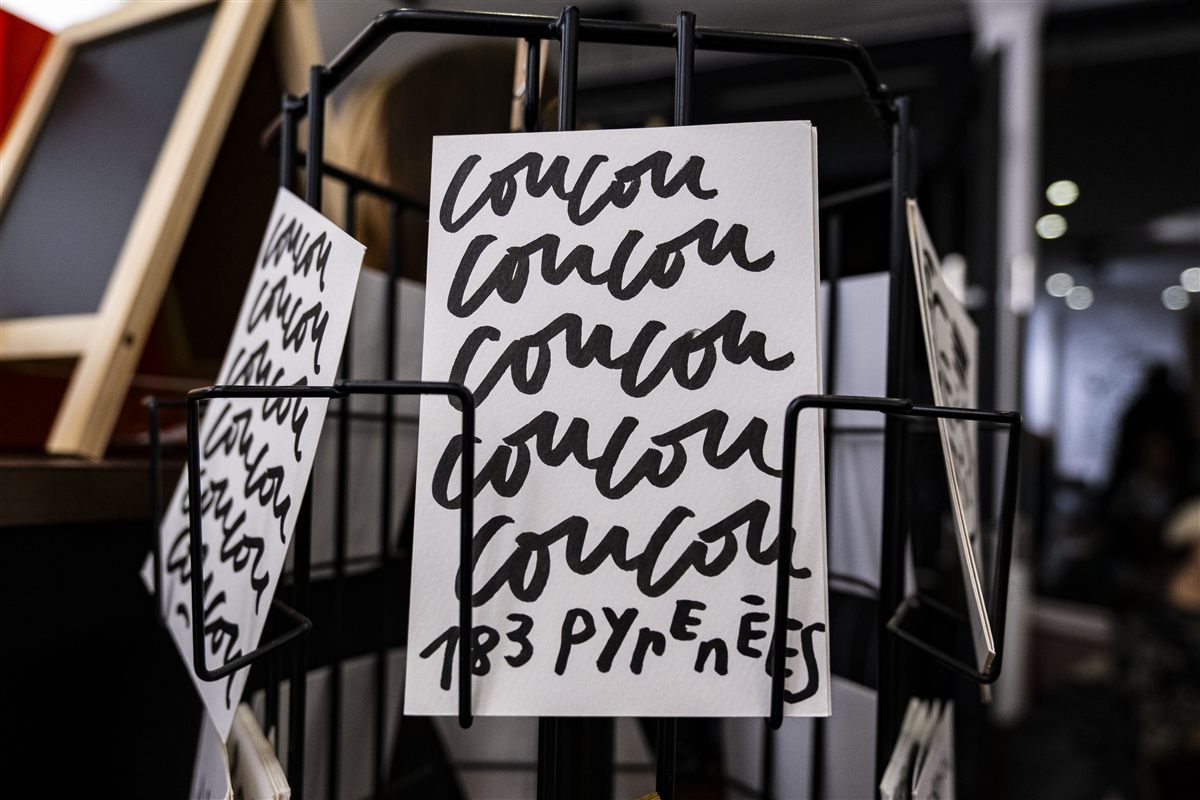 coucou
coucou
coucou
coucou
coucou
183 PYrEnēES
coucou
coucou
coucou
coucou
coucou
coucou